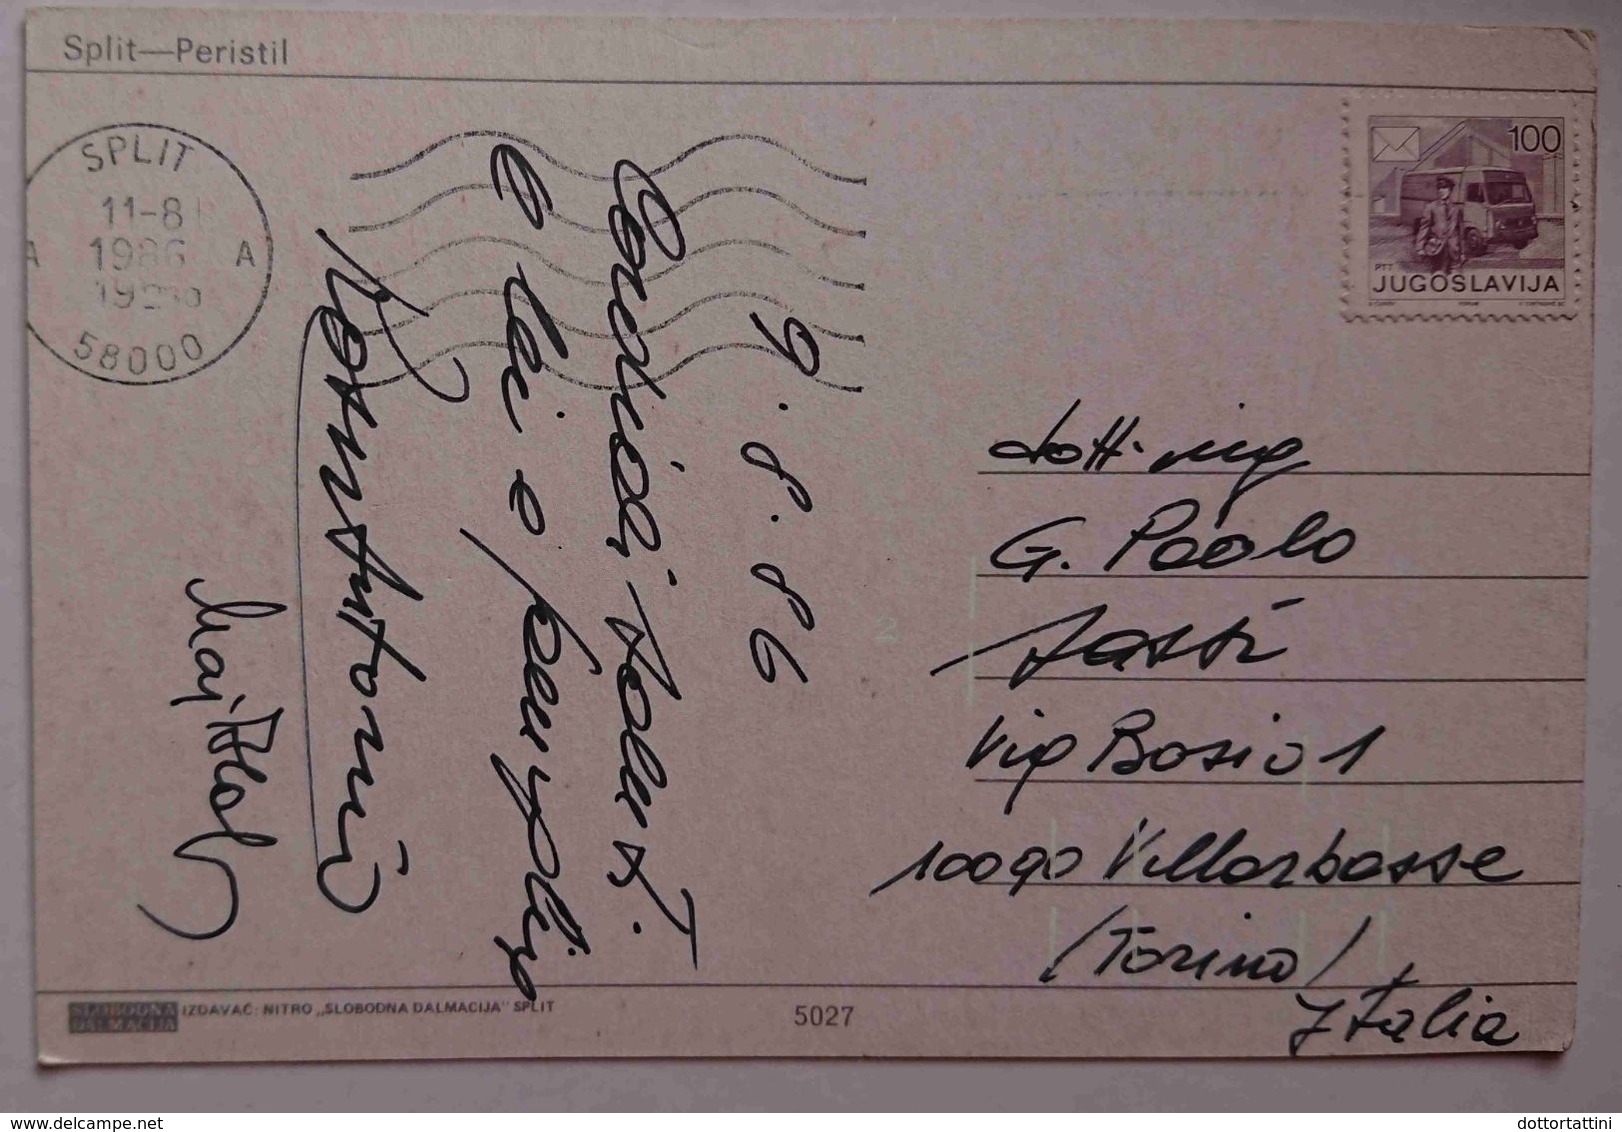 Split—Peristil
SPLIT
11-8
1986
19
A A
58000
100
PTT
JUGOSLAVIJA
9.8.86
Cordiali saluti
e lei e famiglia
dott. ing
G. Paolo
Via Bosio 1
10090 Villarbasse
(Torino)
Italia
SLOBODNA
DALMACIJA
IZDAVAČ: NITRO „SLOBODNA DALMACIJA" SPLIT
5027
2
delcampe.net
dottortattini